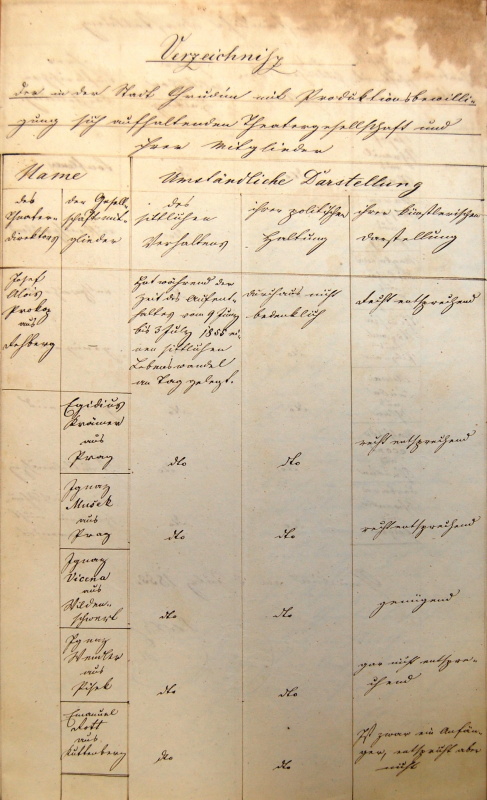 Verzeichniß
der in der Stadt Chrudim mit Produktionsbewilli-
gung sich aufhaltenden Theatergesellschaft und
ihrer Mitglieder
Name
Umständliche Darstellung
des
Theater-
direktors
der Gesell-
schaftsmit-
glieder
des
sittlichen
Verhaltens
ihrer politischen
Haltung
ihrer künstlerischen
Darstellung
Josef
Alois
Prokop
aus
Hat während der
Zeit des Aufent-
haltes vom 9 Juny
bis 3 July 1855 ei-
nen sittlichen
Lebenswandel
an Tag gelegt.
durchaus nicht
bedenklich
recht entsprechend
Egidius
Krämer
aus
Prag
dto
dto
recht entsprechend
Ignaz
Mušek
aus
Prag
dto
dto
recht entsprechend
Ignaz
Vicena
aus
Wilden-
schwert
dto
dto
genügend
Ignaz
Wendler
aus
Pisek
dto
dto
gar nicht entspre-
chend
Emanuel
Rott
aus
Kuttenberg
dto
dto
Ist zwar ein Anfän-
ger, entspricht aber
nicht